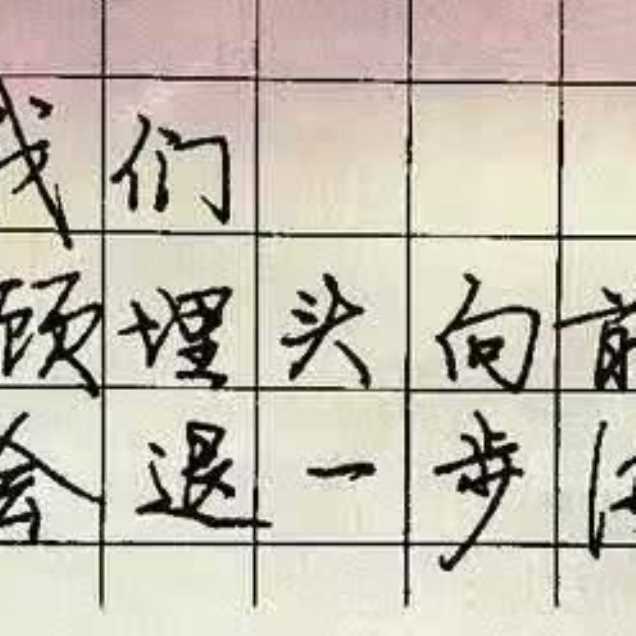 我们
顾埋头向前
会退一步